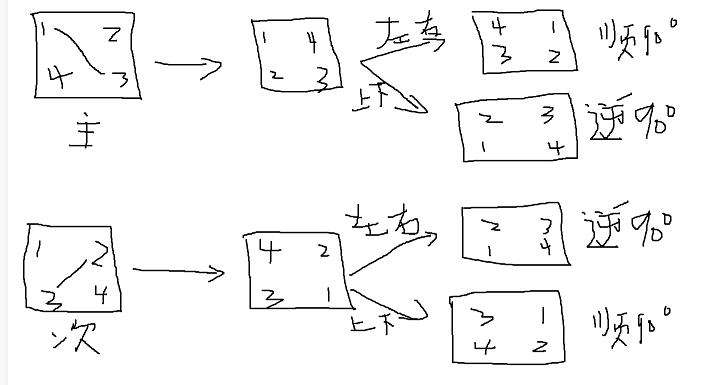 1 2
4 3
主
1 4
2 3
左右
4 1
3 2
顺90°
上下
2 3
1 4
逆90°
1 2
3 4
次
4 2
3 1
左右
2 3
1 4
逆90°
上下
3 1
4 2
顺90°